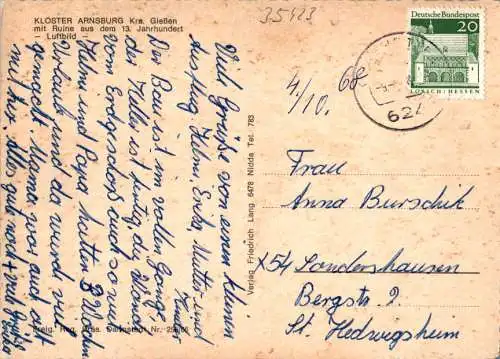 KLOSTER ARNSBURG Krs. Gießen
mit Ruine aus dem 13. Jahrhundert
- Luftbild -
Viele Grüße von einem kleinen
Ausflug. Helmi, Erika, Mutter und
Der Bau ist im vollen Gange,
der Keller ist fertig, die Wände
vom Erdgeschoß auch so
Helmi und Papa hatten 3 Wochen
Urlaub und da wurd viel
gemacht. Mama war auch oft
mit hier. Alles gut noch +
Freig. Reg. Präs. Darmstadt Nr.
Verlag Friedrich Lang 6478 Nidda Tel. 783
35423
4./10. 68
Deutsche Bundespost
20
LORSCH/HESSEN
62
Frau
Anna Burschik
154 Sondershausen
Bergstr. 2
St. Hedwigsheim